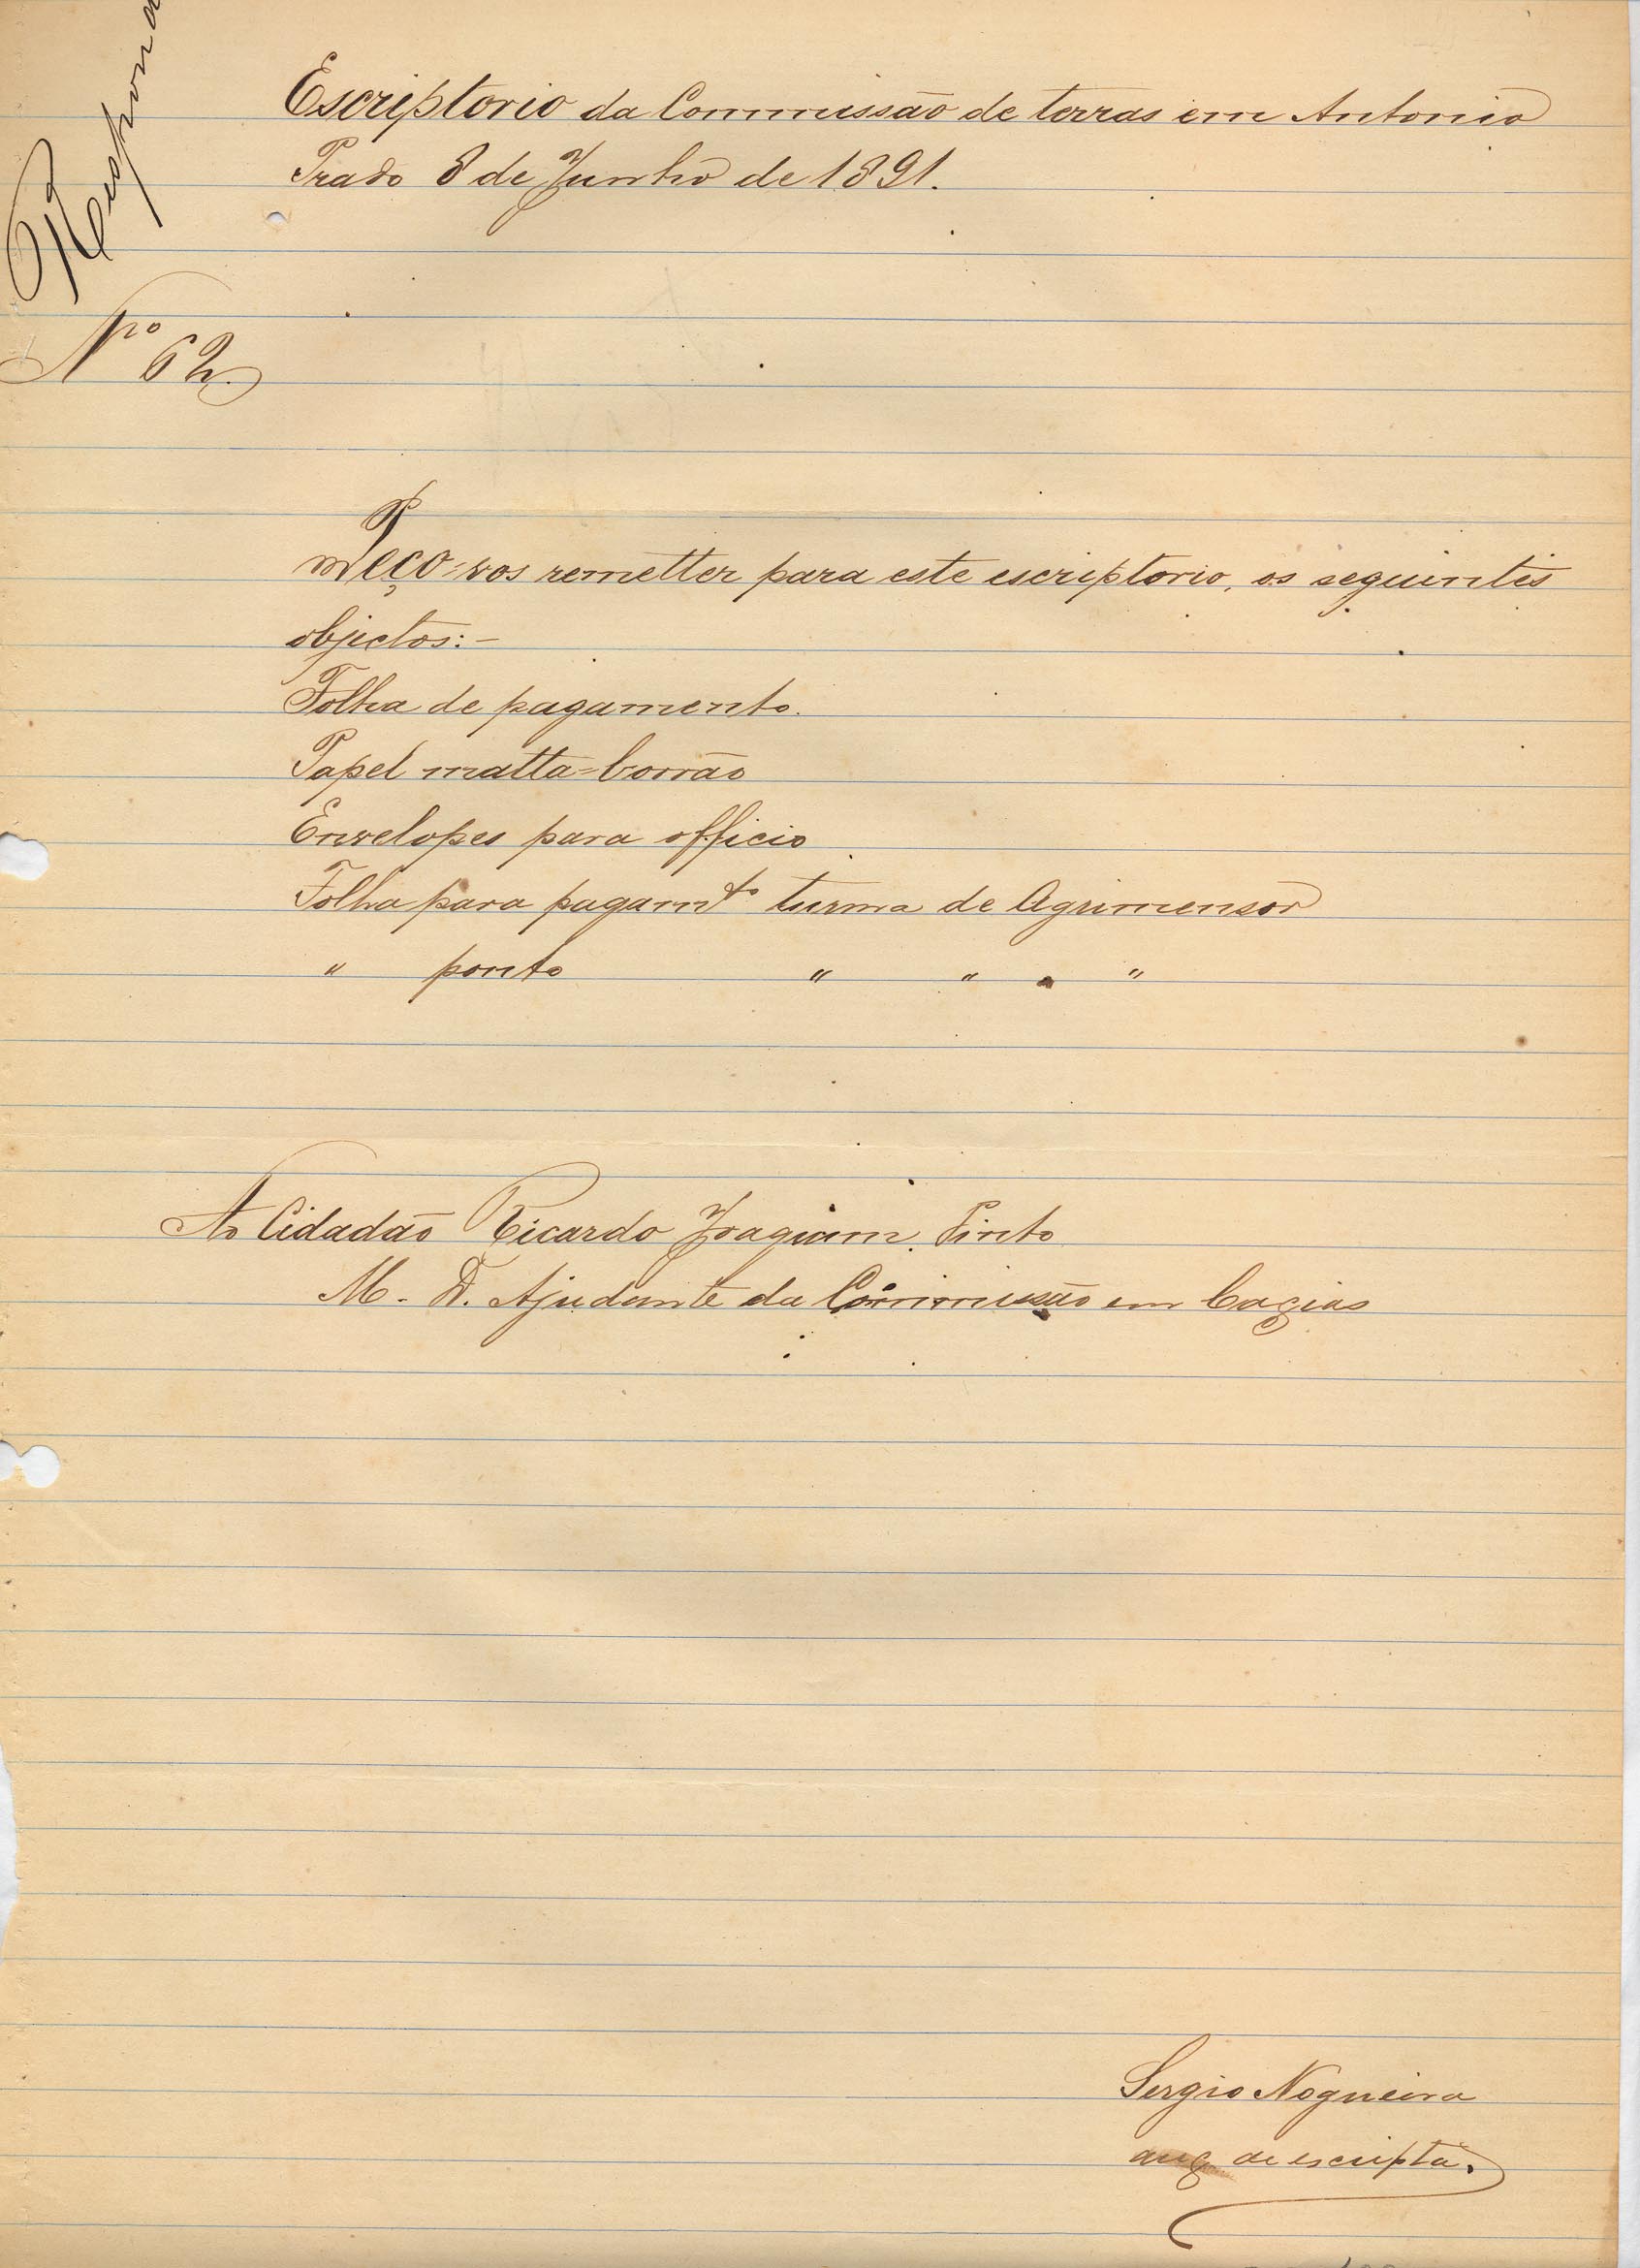 Respond
Escriptorio da Commissão de terras em Antonio
Prado 8 de Junho de 1891.
Nº 62.
Peço-vos remetter para este escriptorio, os seguintes
objectos:-
Folha de pagamento.
Papel matta-borrão
Envelopes para officio
Folha para pagamto turma de Agrimensor
" ponto " " "
Ao Cidadão Ricardo Joaquim Pinto
M. D. Ajudante da Commissão em Caxias
Sergio Nogueira
aux de escripta.